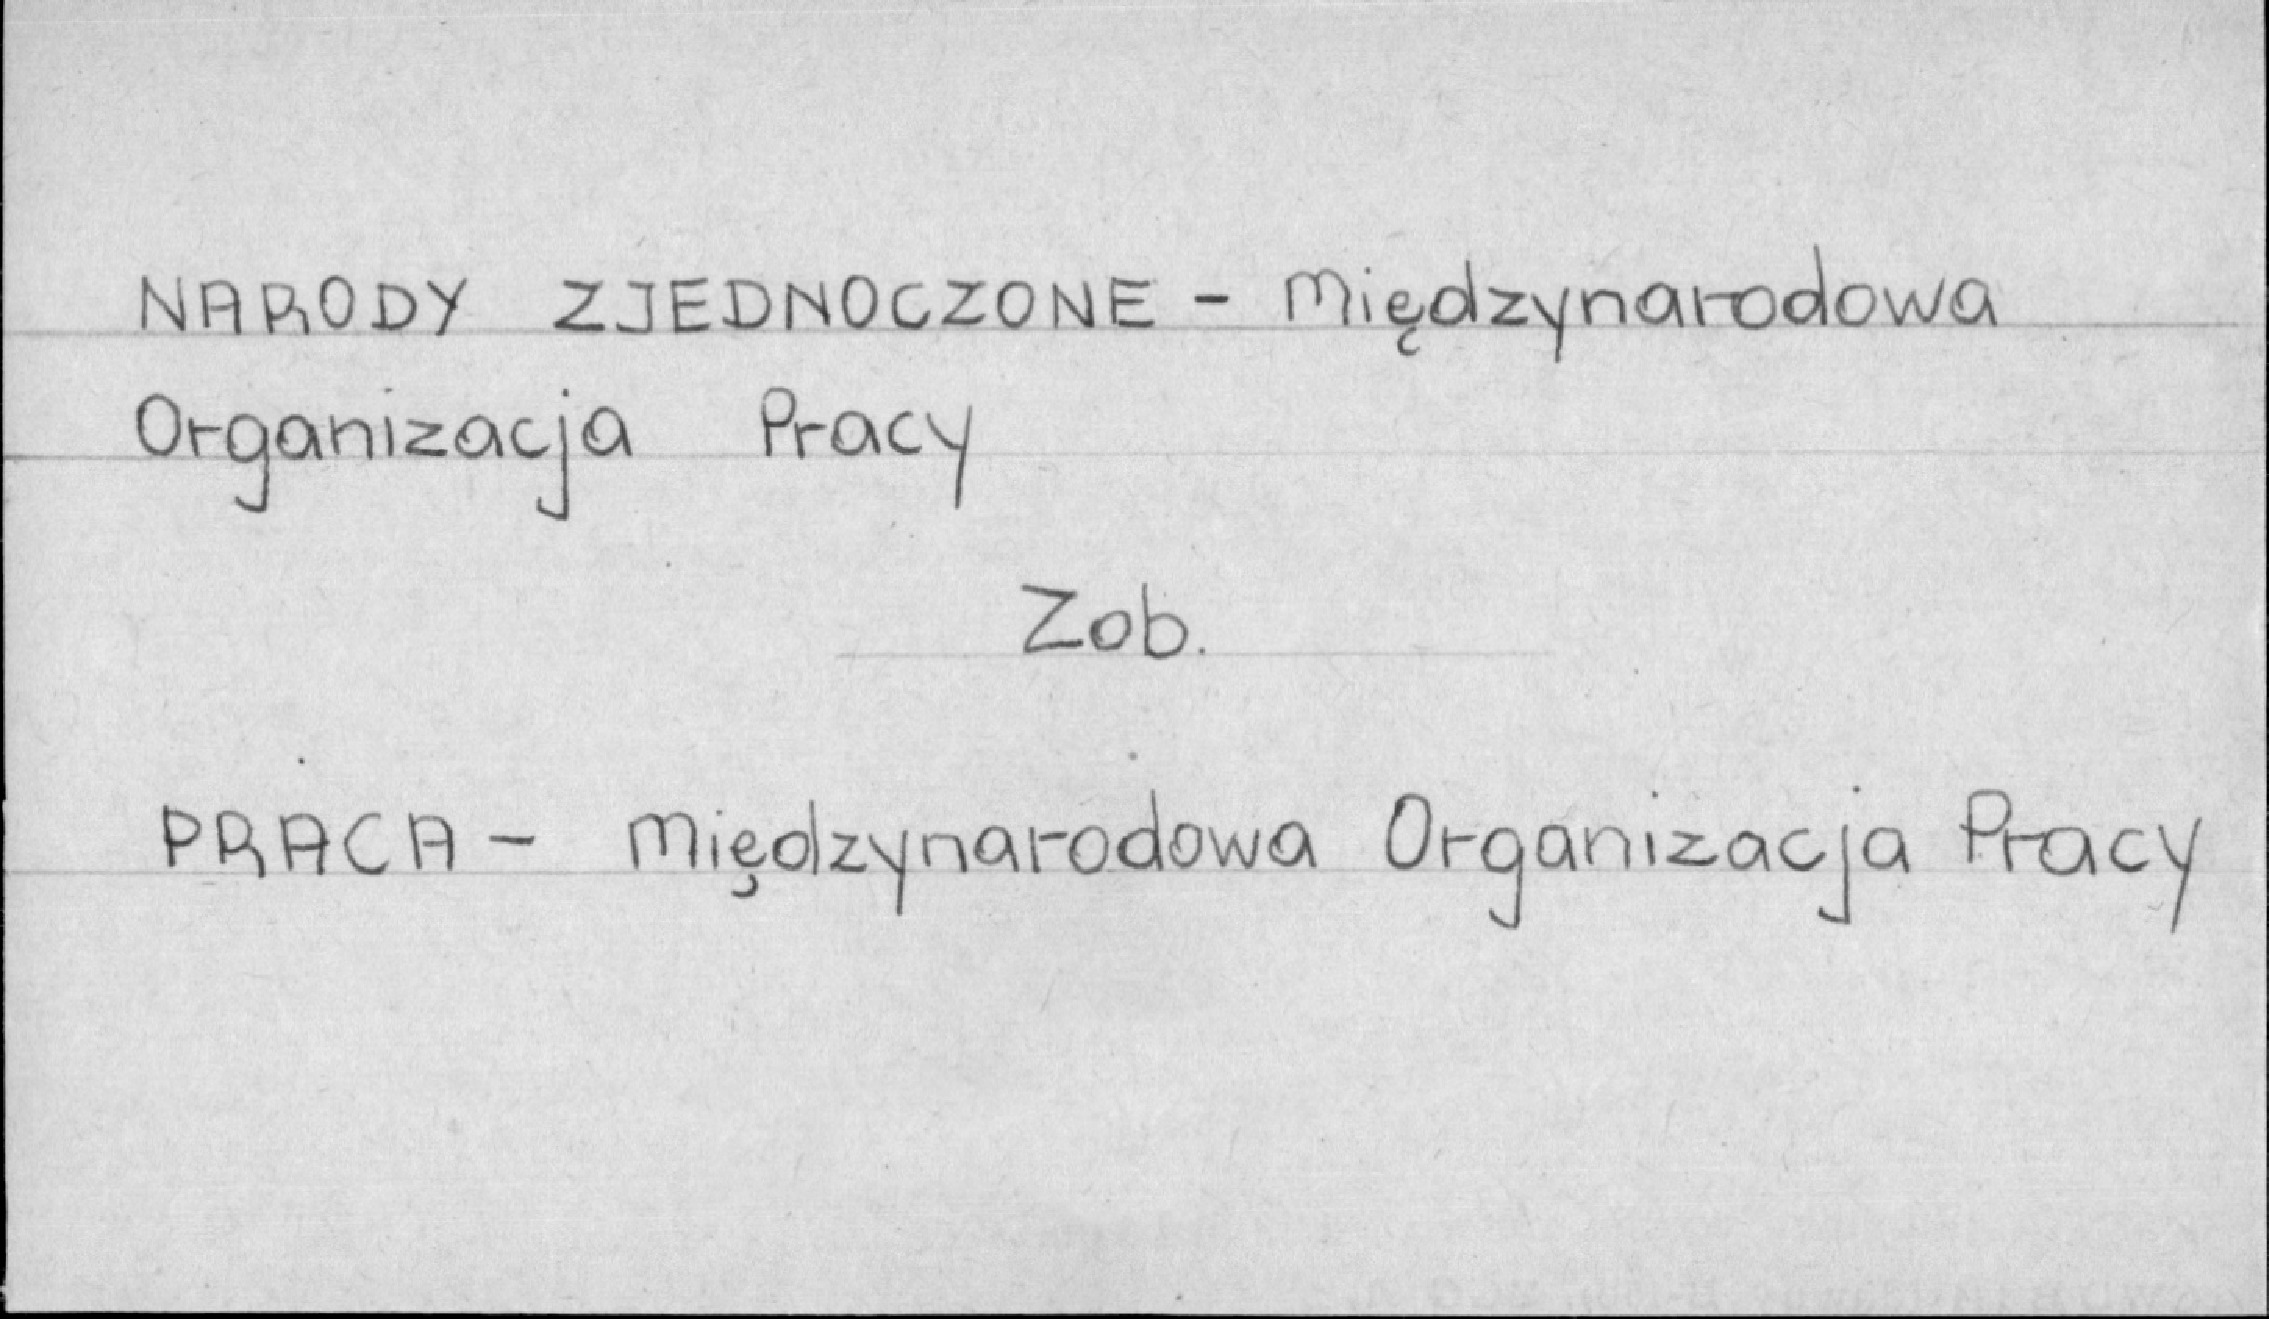 NARODY ZJEDNOCZONE - Międzynarodowa
Organizacja Pracy
Zob.
PRACA - Międzynarodowa Organizacja Pracy